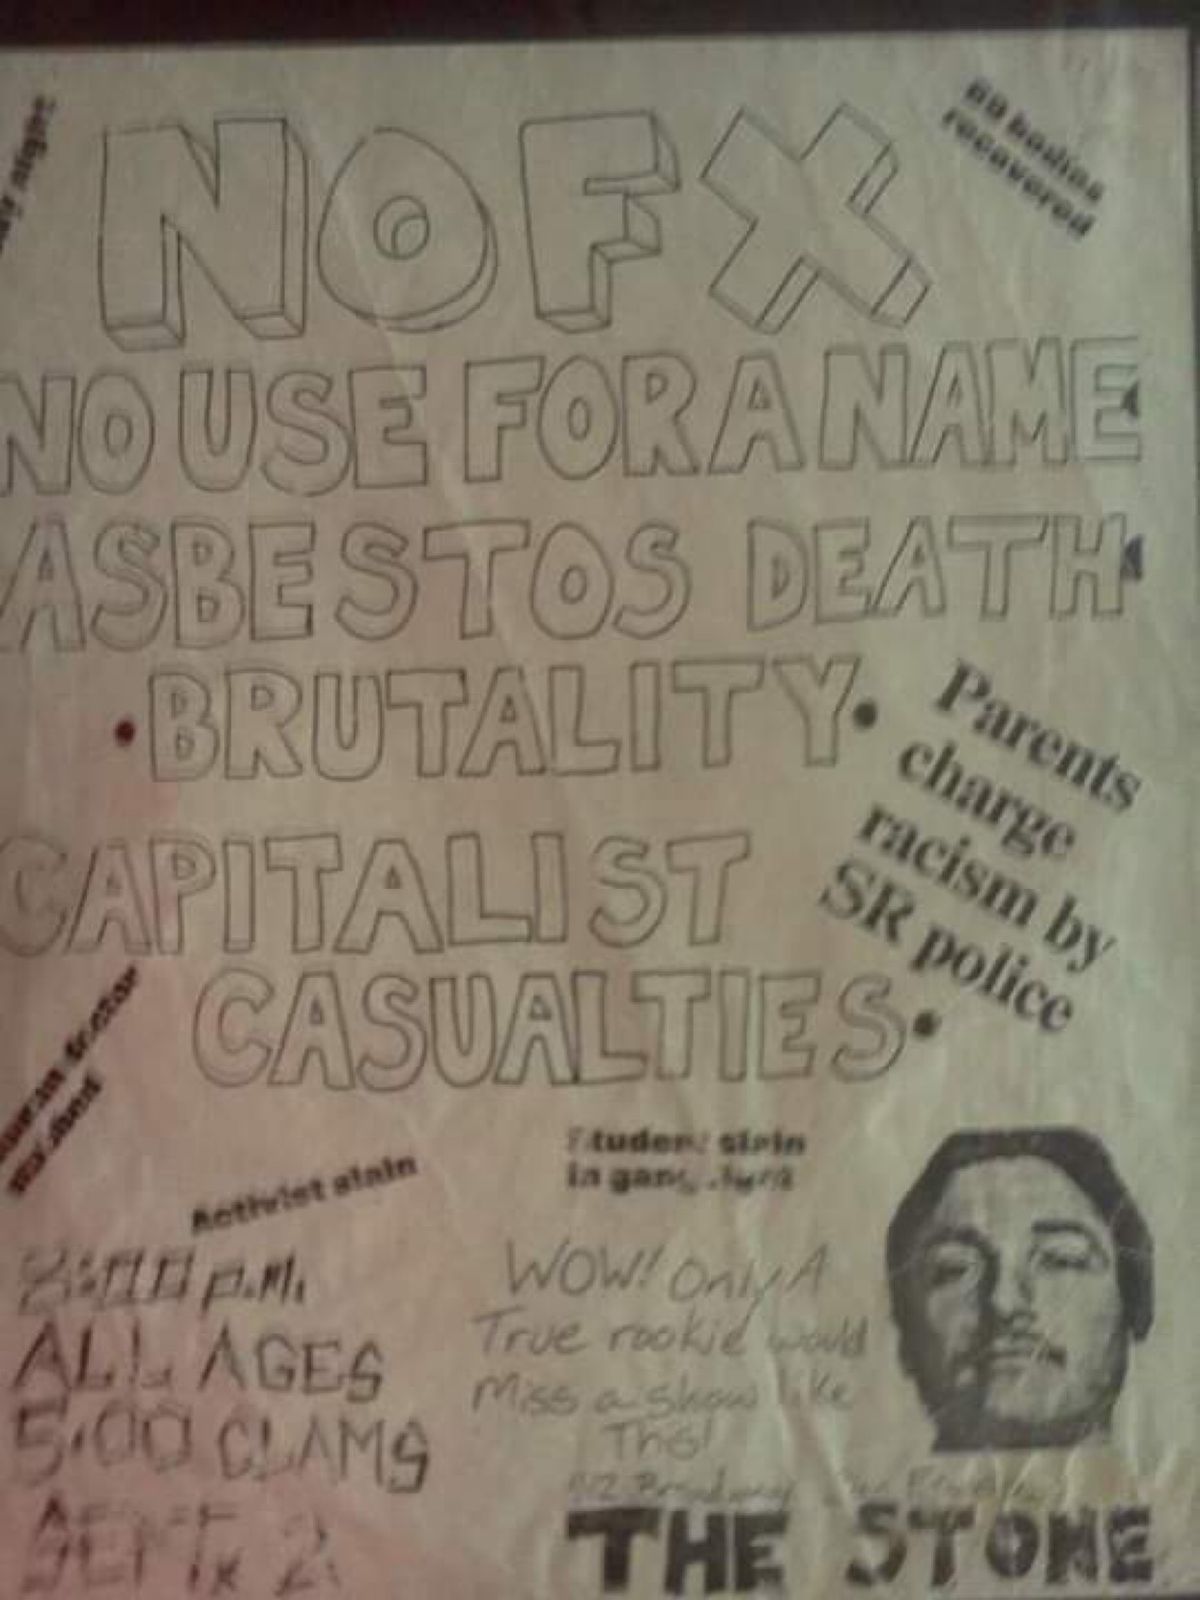 night
60 bodies
recovered
NOFX
NO USE FOR A NAME
ASBESTOS DEATH
• BRUTALITY •
CAPITALIST
CASUALTIES •
Parents
charge
racism by
SR police
Activist slain
Student slain
in gang
8:00 p.m.
ALL AGES
5.00 CLAMS
SEPT. 2
WOW! Only A
True rookie would
Miss a show like
This!
Broadway San
THE STONE